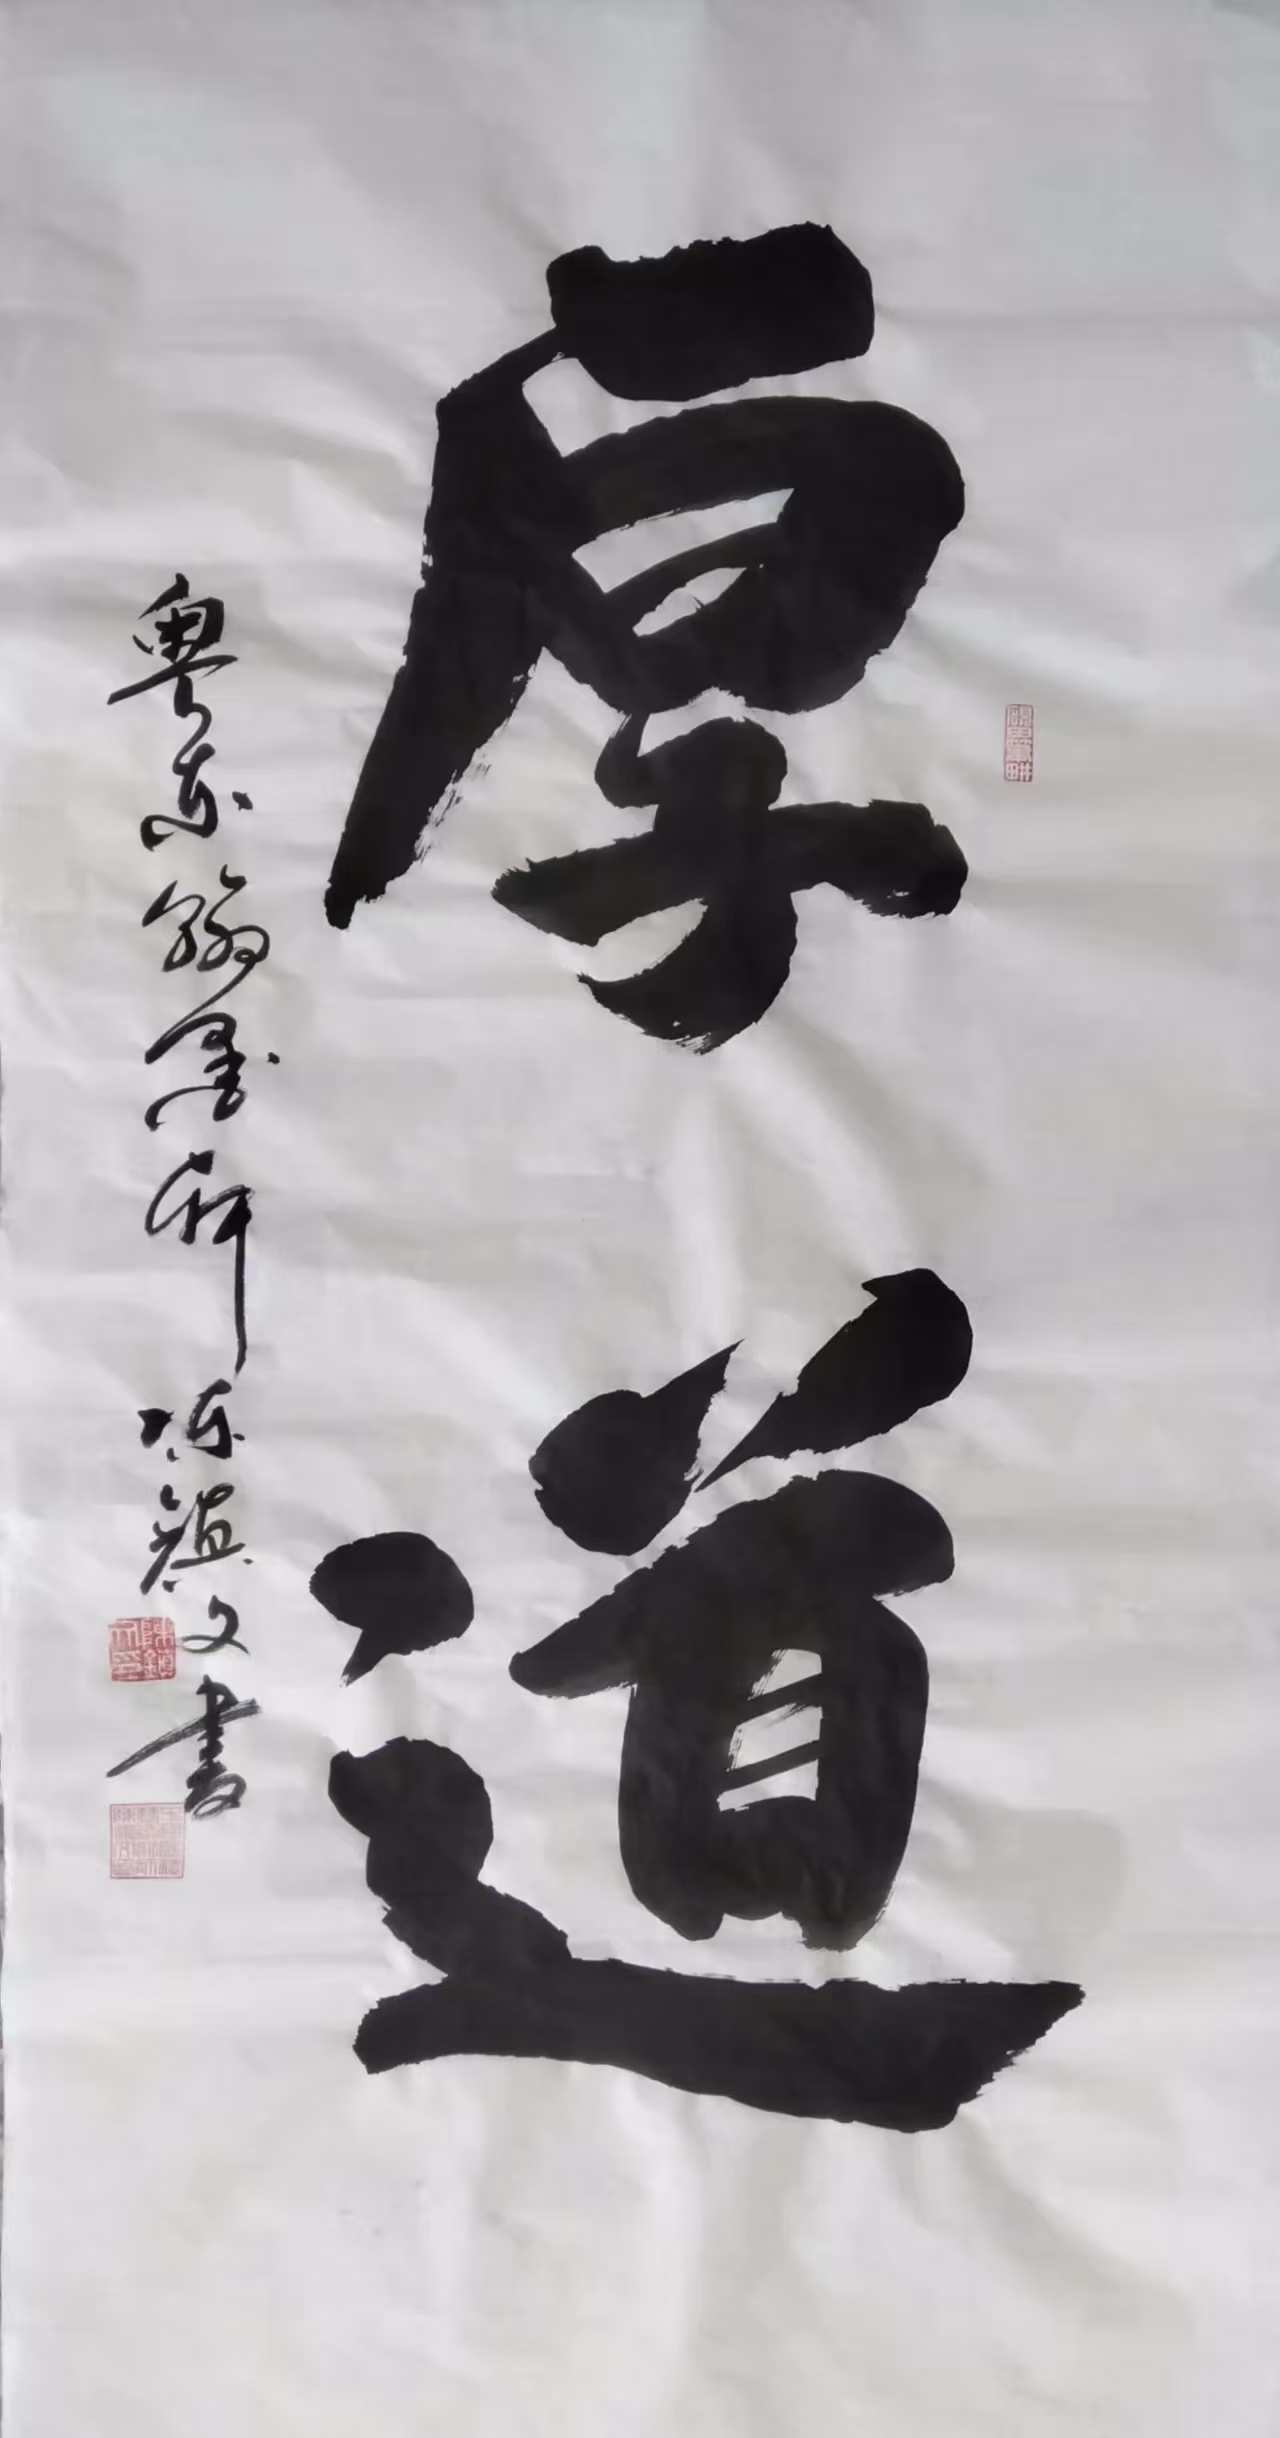 厚道
粤东翰墨轩陈镇文书